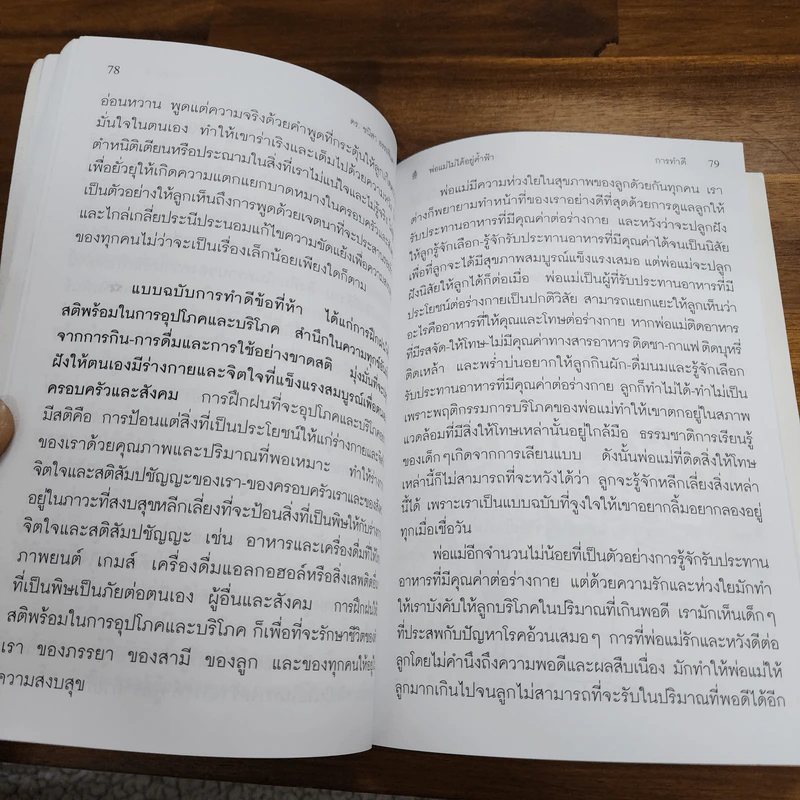 78
อ่อนหวาน พูดแต่ความจริงด้วยคำพูดที่กระตุ้นให้ลูก
มั่นใจในตนเอง ทำให้เขาร่าเริงและเต็มไปด้วยความ
ตำหนิติเตียนหรือประณามในสิ่งที่เราไม่แน่ใจและไม่รู้
เพื่อยั่วยุให้เกิดความแตกแยกบาดหมางในครอบครัวและ
เป็นตัวอย่างให้ลูกเห็นถึงการพูดด้วยเจตนาที่จะประสาน
และไกล่เกลี่ยประนีประนอมแก้ไขความขัดแย้งเพื่อความ
ของทุกคนไม่ว่าจะเป็นเรื่องเล็กน้อยเพียงใดก็ตาม
แบบฉบับการทำดีข้อที่ห้า ได้แก่การฝึก
สติพร้อมในการอุปโภคและบริโภค สำนึกในความทุกข์
จากการกิน-การดื่มและการใช้อย่างขาดสติ มุ่งมั่นที่จะ
ฝังให้ตนเองมีร่างกายและจิตใจที่แข็งแรงสมบูรณ์เพื่อ
ครอบครัวและสังคม การฝึกฝนที่จะอุปโภคและบริโภค
มีสติคือ การป้อนแต่สิ่งที่เป็นประโยชน์ให้แก่ร่างกายและ
ของเราด้วยคุณภาพและปริมาณที่พอเหมาะ ทำให้
จิตใจและสติสัมปชัญญะของเรา-ของครอบครัวเราและของ
อยู่ในภาวะที่สงบสุขหลีกเลี่ยงที่จะป้อนสิ่งที่เป็นพิษให้กับ
จิตใจและสติสัมปชัญญะ เช่น อาหารและเครื่องดื่มที่
ภาพยนต์ เกมส์ เครื่องดื่มแอลกอฮอล์หรือสิ่งเสพติด
ที่เป็นพิษเป็นภัยต่อตนเอง ผู้อื่นและสังคม การฝึกฝน
สติพร้อมในการอุปโภคและบริโภค ก็เพื่อที่จะรักษาชีวิตของ
เรา ของภรรยา ของสามี ของลูก และของทุกคนให้อยู่
ความสงบสุข
พ่อแม่ไม่ได้อยู่ค้ำฟ้า การทำดี 79
พ่อแม่มีความห่วงใยในสุขภาพของลูกด้วยกันทุกคน เรา
ต่างก็พยายามทำหน้าที่ของเราอย่างดีที่สุดด้วยการดูแลลูกให้
รับประทานอาหารที่มีคุณค่าต่อร่างกาย และหวังว่าจะปลูกฝัง
ให้ลูกรู้จักเลือก-รู้จักรับประทานอาหารที่มีคุณค่าได้จนเป็นนิสัย
เพื่อที่ลูกจะได้มีสุขภาพสมบูรณ์แข็งแรงเสมอ แต่พ่อแม่จะปลูก
ฝังนิสัยให้ลูกได้ก็ต่อเมื่อ พ่อแม่เป็นผู้ที่รับประทานอาหารที่มี
ประโยชน์ต่อร่างกายเป็นปกติวิสัย สามารถแยกแยะให้ลูกเห็นว่า
อะไรคืออาหารที่ให้คุณและโทษต่อร่างกาย หากพ่อแม่ติดอาหาร
ที่มีรสจัด-ให้โทษ-ไม่มีคุณค่าทางสารอาหาร ติดชา-กาแฟ ติดบุหรี่
ติดเหล้า และพร่ำบ่นอยากให้ลูกกินผัก-ดื่มนมและรู้จักเลือก
รับประทานอาหารที่มีคุณค่าต่อร่างกาย ลูกก็ทำไม่ได้-ทำไม่เป็น
เพราะพฤติกรรมการบริโภคของพ่อแม่ทำให้เขาตกอยู่ในสภาพ
แวดล้อมที่มีสิ่งให้โทษเหล่านั้นอยู่ใกล้มือ ธรรมชาติการเรียนรู้
ของเด็กๆเกิดจากการเลียนแบบ ดังนั้นพ่อแม่ที่ติดสิ่งให้โทษ
เหล่านี้ก็ไม่สามารถที่จะหวังได้ว่า ลูกจะรู้จักหลีกเลี่ยงสิ่งเหล่า
นี้ได้ เพราะเราเป็นแบบฉบับที่จูงใจให้เขาอยากลิ้มอยากลองอยู่
ทุกเมื่อเชื่อวัน
พ่อแม่อีกจำนวนไม่น้อยที่เป็นตัวอย่างการรู้จักรับประทาน
อาหารที่มีคุณค่าต่อร่างกาย แต่ด้วยความรักและห่วงใยมักทำ
ให้เราบังคับให้ลูกบริโภคในปริมาณที่เกินพอดี เรามักเห็นเด็กๆ
ที่ประสพกับปัญหาโรคอ้วนเสมอๆ การที่พ่อแม่รักและหวังดีต่อ
ลูกโดยไม่คำนึงถึงความพอดีและผลสืบเนื่อง มักทำให้พ่อแม่ให้
ลูกมากเกินไปจนลูกไม่สามารถที่จะรับในปริมาณที่พอดีได้อีก